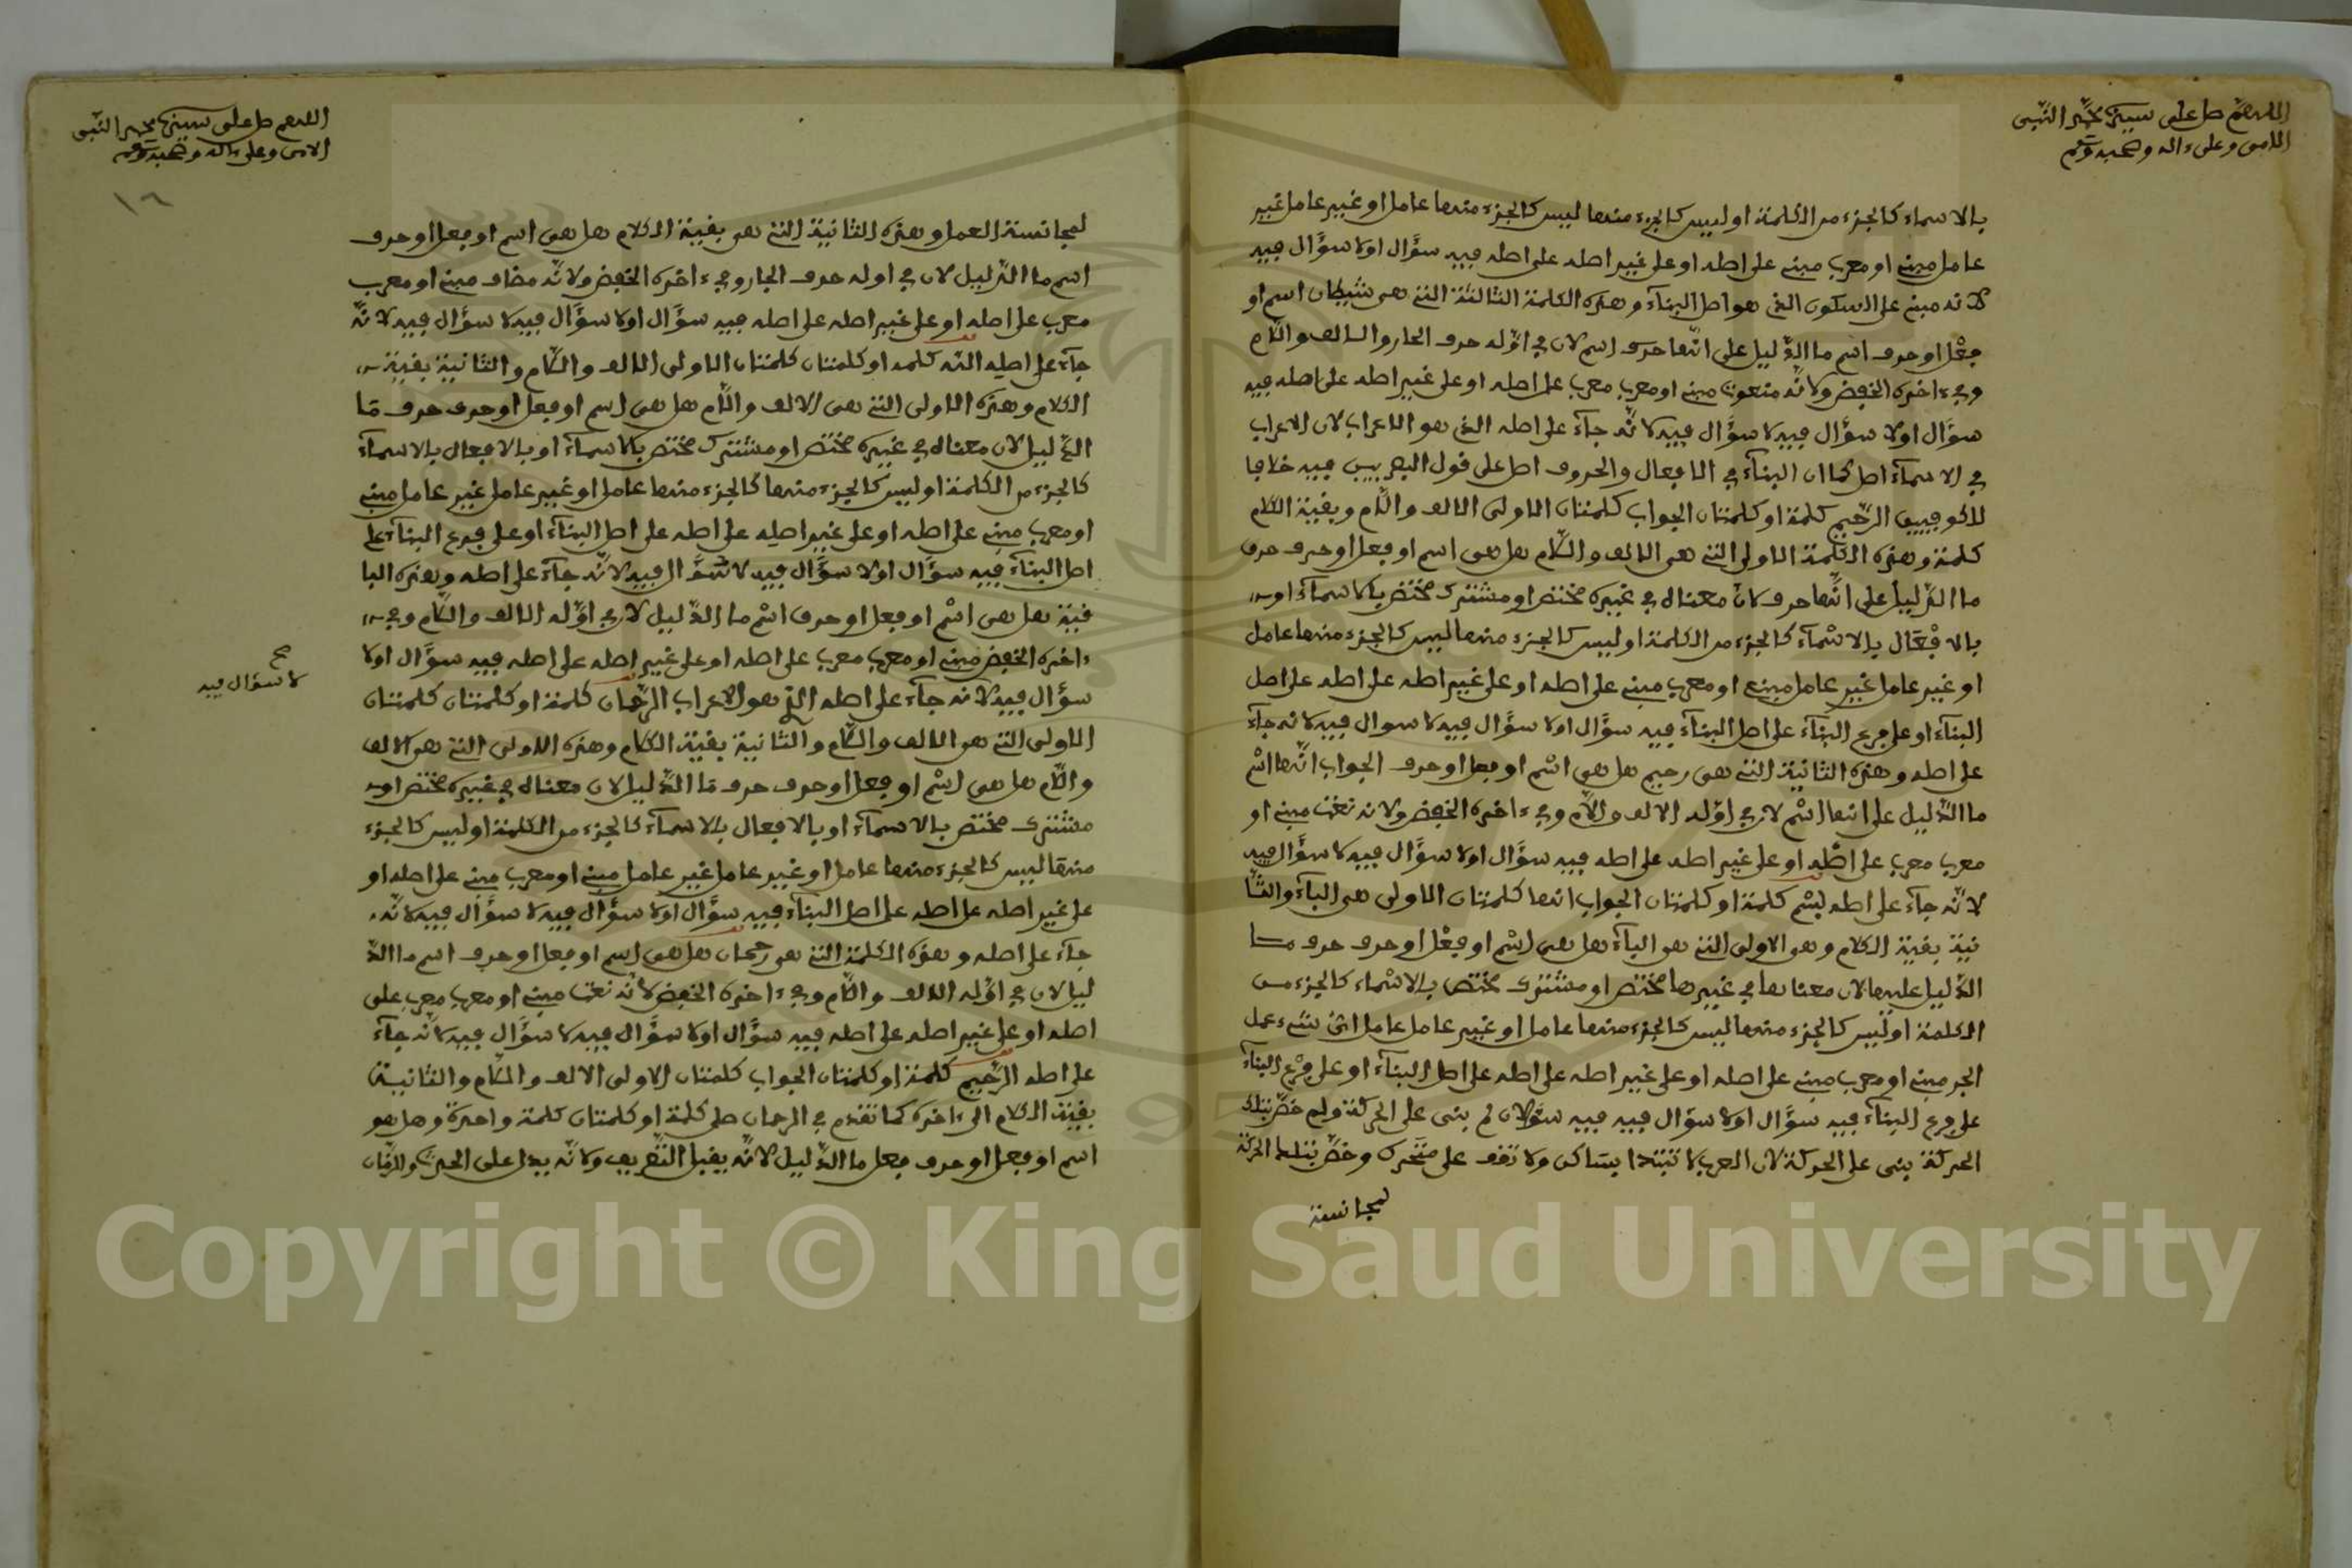 اللهم صل على سيدنا محمد النبي
الامي وعلى ءاله وصحبه وسلم
بالاسماء كالجزء من الكلمة او ليس كالجزء منها ليس كالجزء منها عامل او غير عامل غير
عامل مبني او معرب مبني على اصله او على غير اصله على اصله فيه سؤال اولا سؤال فيه
لانه مبني على السكون الذي هو اصل البناء وهذه الكلمة الثالثة التي هي شيطان اسم او
فعل او حرف اسم ما الدليل على انها اسم لان في اوله حرف الجار والالف واللام
وفي ءاخره الخفض ولانه منعوت مبني او معرب معرب على اصله او على غير اصله على اصله فيه
سؤال اولا سؤال فيه لا سؤال فيه لانه جاء على اصله الذي هو الاعراب لان الاعراب
في الاسماء اصل كما ان البناء في الافعال والحروف اصل على قول البصريين فيه خلافا
للكوفيين الرجيم كلمة او كلمتان الجواب كلمتان الاولى الالف واللام وبقية الكلام
كلمة وهذه الكلمة الاولى التي هي الالف واللام هل هي اسم او فعل او حرف حرف
ما الدليل على انها حرف لان معناه في غيره مختص او مشترك مختص بالاسماء او
بالافعال بالاسماء كالجزء من الكلمة او ليس كالجزء منها ليس كالجزء منها عامل
او غير عامل غير عامل مبني او معرب مبني على اصله او على غير اصله على اصله على اصل
البناء او على فرع البناء على اصل البناء فيه سؤال اولا سؤال فيه لا سوال فيه لانه جاء
على اصله وهذه الثانية التي هي رجيم هل هي اسم او فعل او حرف الجواب انها اسم
ما الدليل على انها اسم لان في اوله الالف واللام وفي ءاخره الخفض ولانه نعت مبني او
معرب معرب على اصله او على غير اصله على اصله فيه سؤال اولا سؤال فيه لا سؤال فيه
لانه جاء على اصله بسم كلمة او كلمتان الجواب انها كلمتان الاولى هي الباء والثا
نية بقية الكلام وهي الاولى التي هي الباء هل هي اسم او فعل او حرف حرف ما
الدليل عليها لان معناها في غيرها مختص او مشترك مختص بالاسماء كالجزء من
الكلمة او ليس كالجزء منها ليس كالجزء منها عامل او غير عامل عامل اي شيء عمل
الجر مبني او معرب مبني على اصله او على غير اصله على اصله على اصل البناء او على فرع البناء
على فرع البناء فيه سؤال اولا سؤال فيه فيه سؤلان لم بنى على الحركة ولم خص بتلك
الحركة بنى على الحركة لان العرب لا تبتدا بساكن ولا تقف على متحرك وخص بتلك الحركة
لمجانسة
اللهم صل على سيدنا محمد النبي
الامي وعلى ءاله وصحبه وسلم
١٦
لمجانسة العمل وهذه الثانية التي هي بقية الكلام هل هي اسم او فعل او حرف
اسم ما الدليل لان في اوله حرف الجار وفي ءاخره الخفض ولانه مضاف مبني او معرب
معرب على اصله او على غير اصله على اصله فيه سؤال اولا سؤال فيه لا سؤال فيه لانه
جاء على اصله الله كلمه او كلمتان كلمتان الاولى الالف واللام والثانية بقية
الكلام وهذه الاولى التي هي الالف واللام هل هي اسم او فعل او حرف حرف ما
الدليل لان معناه في غيره مختص او مشترك مختص بالاسماء او بالافعال بالاسماء
كالجزء من الكلمة او ليس كالجزء منها كالجزء منها عامل او غير عامل غير عامل مبني
او معرب مبني على اصله او على غير اصله على اصله على اصل البناء او على فرع البناء على
اصل البناء فيه سؤال اولا سؤال فيه لا سؤال فيه لانه جاء على اصله وهذه البا
قية هل هي اسم او فعل او حرف اسم ما الدليل لان في اوله الالف واللام وفي
ءاخره الخفض مبني او معرب معرب على اصله او على غير اصله على اصله فيه سؤال اولا
صح
لا سؤال فيه
سؤال فيه لانه جاء على اصله الذي هو الاعراب الرحمان كلمة او كلمتان كلمتان
الاولى التي هي الالف واللام والثانية بقية الكلام وهذه الاولى التي هي الالف
واللام هل هي اسم او فعل او حرف حرف ما الدليل لان معناه في غيره مختص او
مشترك مختص بالاسماء او بالافعال بالاسماء كالجزء من الكلمة او ليس كالجزء
منها ليس كالجزء منها عامل او غير عامل غير عامل مبني او معرب مبني على اصله او
على غير اصله على اصله على اصل البناء فيه سؤال اولا سؤال فيه لا سؤال فيه لانه
جاء على اصله وهذه الكلمة التي هي رحمان هل هي اسم او فعل او حرف اسم ما الد
ليل لان في اوله الالف واللام وفي ءاخره الخفض لانه نعت مبني او معرب معرب على
اصله او على غير اصله على اصله فيه سؤال اولا سؤال فيه لا سؤال فيه لانه جاء
على اصله الرحيم كلمة او كلمتان الجواب كلمتان الاولى الالف واللام والثانية
بقية الكلام الى ءاخره كما تقدم في الرحمان صلى كلمة او كلمتان كلمة واحدة وهل هو
اسم او فعل او حرف فعل ما الدليل لانه يقبل التصريف ولانه يدل على الحدث والزمان
Copyright © King Saud University